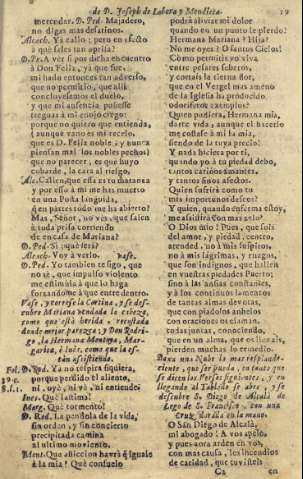 de D. Joseph de Lobera y Mendieta. 19
mercedar. D. Ped. Majadero,
no digas mas desatinos.
Alcach. Ya callo; pero en efecto
à què sales tan aprisa?
D. Pe. A ver si por dicha encuentro
à Don Felix, ya que fue
mi hado entonces tan adverso,
que no permitiò, que alli
concluyessemos el duelo,
y que mi ausencia pudiesse
treguas à mi enojo ciego:
porque no quiero que entienda,
(aunque varto es mi rezelo,
que es D. Felix noble, y nunca
piensan mal los nobles pechos)
que no parecer, es que huyo
cobarde, la cara al riesgo.
Alc. Callen, que essa es tu mania
y por esso à mi me has muerto
en una Posada
en partes todo me ha abierto?
Mas, Señor, no vès, que salen
à toda prisa corriendo
de en casa de Mariana?
D. Ped. Sì; què serà?
Alcach. Voy à verlo. vase.
D. Ped. Yo tambien te sigo, que
no sè, que impulso violento
me estimula à que lo haga
forzandome à que entre dentro.
Vase, y correse la Cortina, y se des-
cubre Mariana vendada la cabeza,
como que està herida, recostada
donde mejor parezca; y Don Rodri-
go, la Hermana Monteya, Mar-
garita, è Inès, como que la es-
tàn assistiendo.
D. Rod. Ya no respira siquiera,
porque perdido el aliento,
ni oye, ni vè, ni entiende
Ines. Què lastima!
Marg. Què tormento!
D. Rod. La pendola de la vida,
sin orden, y sin concierto
precipitada camina
al ultimo movimiento.
Mont. Què afliccion havrà que iguale
à la mia! Què consuelo
podrà aliviar mi dolor
quando en un punto le pierdo?
Hermana Mariana? Hija?
No me oyes? O Santos Cielos!
Como permitis no viva
entre pesares severos,
y cortais la tierna flor,
que en el Vergel mas ameno
de la Iglesia ha producido
odoriferos exemplos?
Quien pudiera, Hermana mia,
darte vida, aunque el hacerlo
me costasse à mi la mia,
siendo de la tuya precio!
Y nada hiciera por ti,
quando yo à tu piedad debo,
tantos cariños amantes,
y tantos finos afectos.
Quien sufrirà como tu
mis importunos deseos?
Y quien, quando enferma estoy,
me assistirà con mas zelo?
O Dios mio! Pues, que sois
del amor, y piedad centro,
atended, no à mis suspiros,
no à mis lagrimas, y ruegos,
que son indignos, que hallen
en vuestras piedades Puerto;
sino à las ansias constantes,
y à los continuos lamentos
de tantas almas devotas,
que con piadosos anhelos
con oraciones os claman,
todas juntas, conociendo,
que en un alma, que es llevais,
pierden mucho los remedio.
Baxa una Nube lo mas resplande-
ciente, que se pueda, en tanto que
se dicen los Versos siguientes, y en
llegando al Tablado se abre, y se
descubre S. Diego de Alcalà de
Lego de S. Francisco, con una
Cruz dorada en la mano.
O San Diego de Alcalà,
mi abogado! A vos apelo,
y pues aora arden en vos,
con mas causa, los incendios
de caridad, que tuvisteis
C2 en